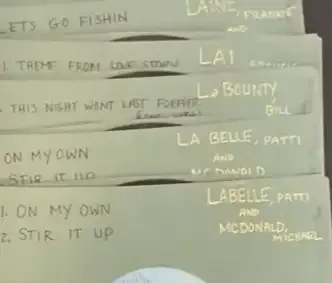 LETS GO FISHIN
LAINE, FRANKIE
AND
1. THEME FROM LOVE STORY
LAI
THIS NIGHT WONT LAST FOREVER
LaBOUNTY,
BILL
ON MY OWN
STIR IT UP
LA BELLE, PATTI
AND
MCDONALD
1. ON MY OWN
2. STIR IT UP
LABELLE, PATTI
AND
MCDONALD,
MICHAEL